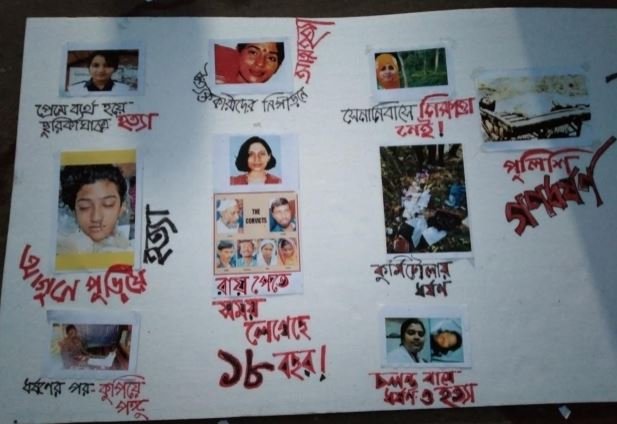 প্রেমে ব্যর্থ হয়ে
ছুরিকাঘাতে হত্যা
আগুনে পুড়িয়ে
হত্যা
ধর্ষণের পর কুপিয়ে
পঙ্গু
কারীদের নির্যাতনে
আত্মহত্যা
THE
CONVICTS
রায় পেতে
সময়
লেগেছে
১৮ বছর!
সেনানিবাসে নিরাপত্তা
নেই!
কুর্মিটোলায়
ধর্ষণ
চলন্ত বাসে
ধর্ষণ ও হত্যা
পুলিশি
গণধর্ষণ